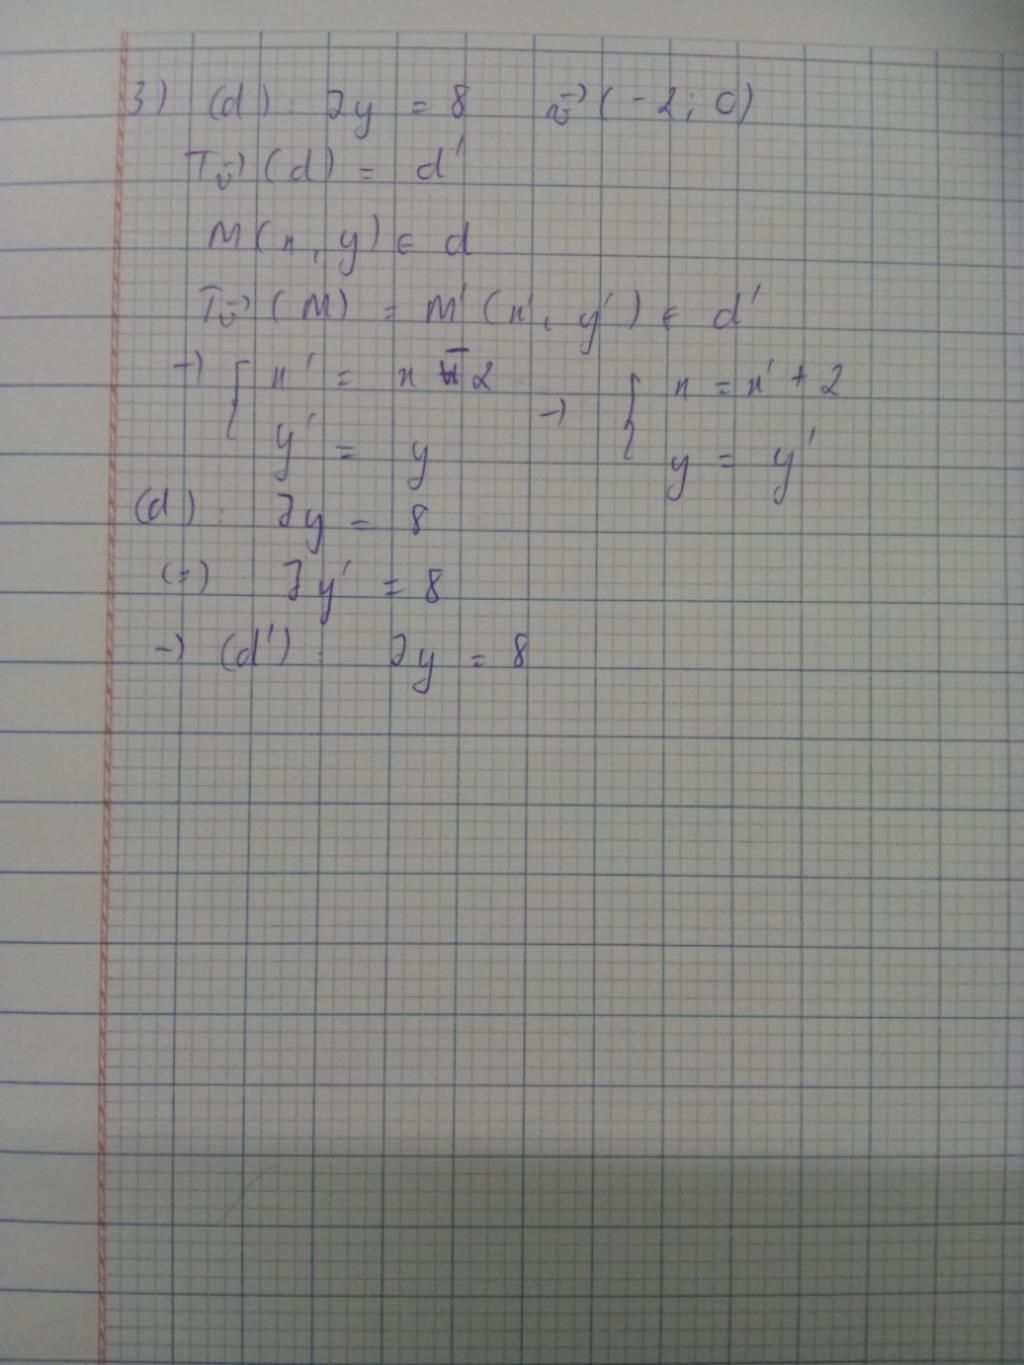 3) (d): 2y = 8 v→(-2; 0)
Tv→(d) = d'
M(x, y) ∈ d
Tv→(M) = M'(x', y') ∈ d'
→ { x' = x - 2 → { x = x' + 2
y' = y y = y'
(d): 2y = 8
(=) 2y' = 8
→ (d'): 2y = 8